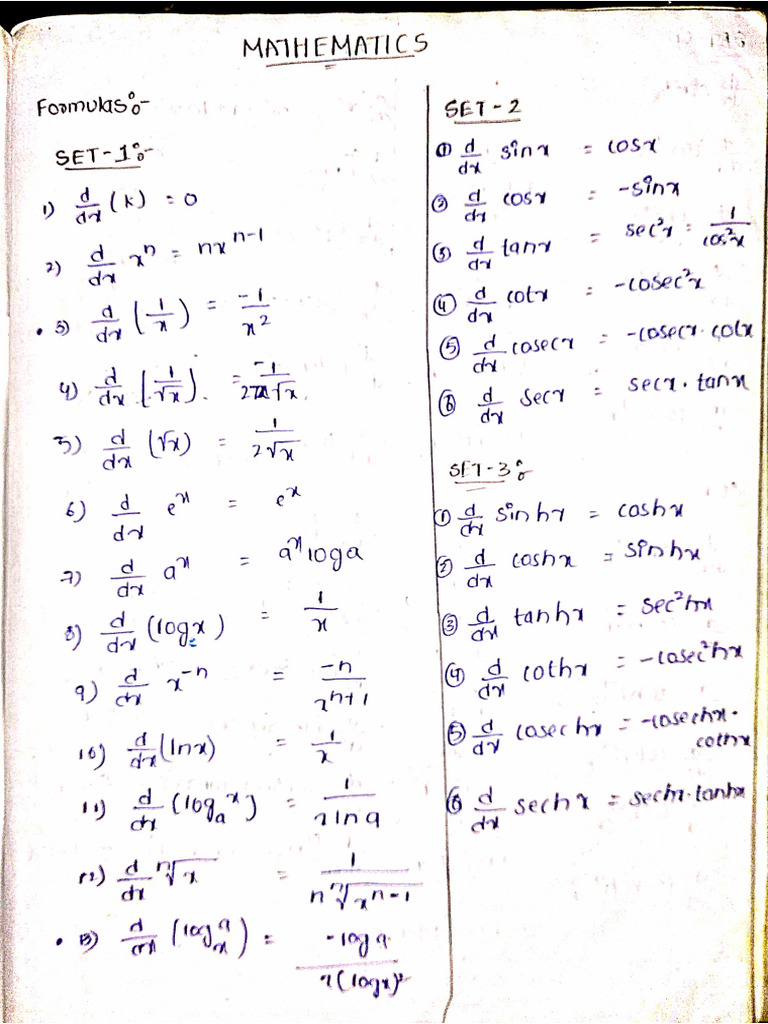 MATHEMATICS
Formulas:-
SET-1:-
1) d/dx (k) = 0
2) d/dx xⁿ = nxⁿ⁻¹
3) d/dx (1/x) = -1/x²
4) d/dx (1/√x) = -1/2x√x
5) d/dx (√x) = 1/2√x
6) d/dx eˣ = eˣ
7) d/dx aˣ = aˣ loga
8) d/dx (logₑx) = 1/x
9) d/dx x⁻ⁿ = -n/xⁿ⁺¹
10) d/dx (lnx) = 1/x
11) d/dx (logₐx) = 1/x ln a
12) d/dx ⁿ√x = 1/n ⁿ√xⁿ⁻¹
13) d/dx (logₓa) = -log a/x(logx)²
SET-2
① d/dx sinx = cosx
② d/dx cosx = -sinx
③ d/dx tanx = sec²x = 1/cos²x
④ d/dx cotx = -cosec²x
⑤ d/dx cosecx = -cosecx·cotx
⑥ d/dx secx = secx·tanx
SET-3:-
① d/dx sinhx = coshx
② d/dx coshx = sinhx
③ d/dx tanhx = sec²hx
④ d/dx cothx = -cosec²hx
⑤ d/dx cosechx = -cosechx·
cothx
⑥ d/dx sechx = sechx·tanhx